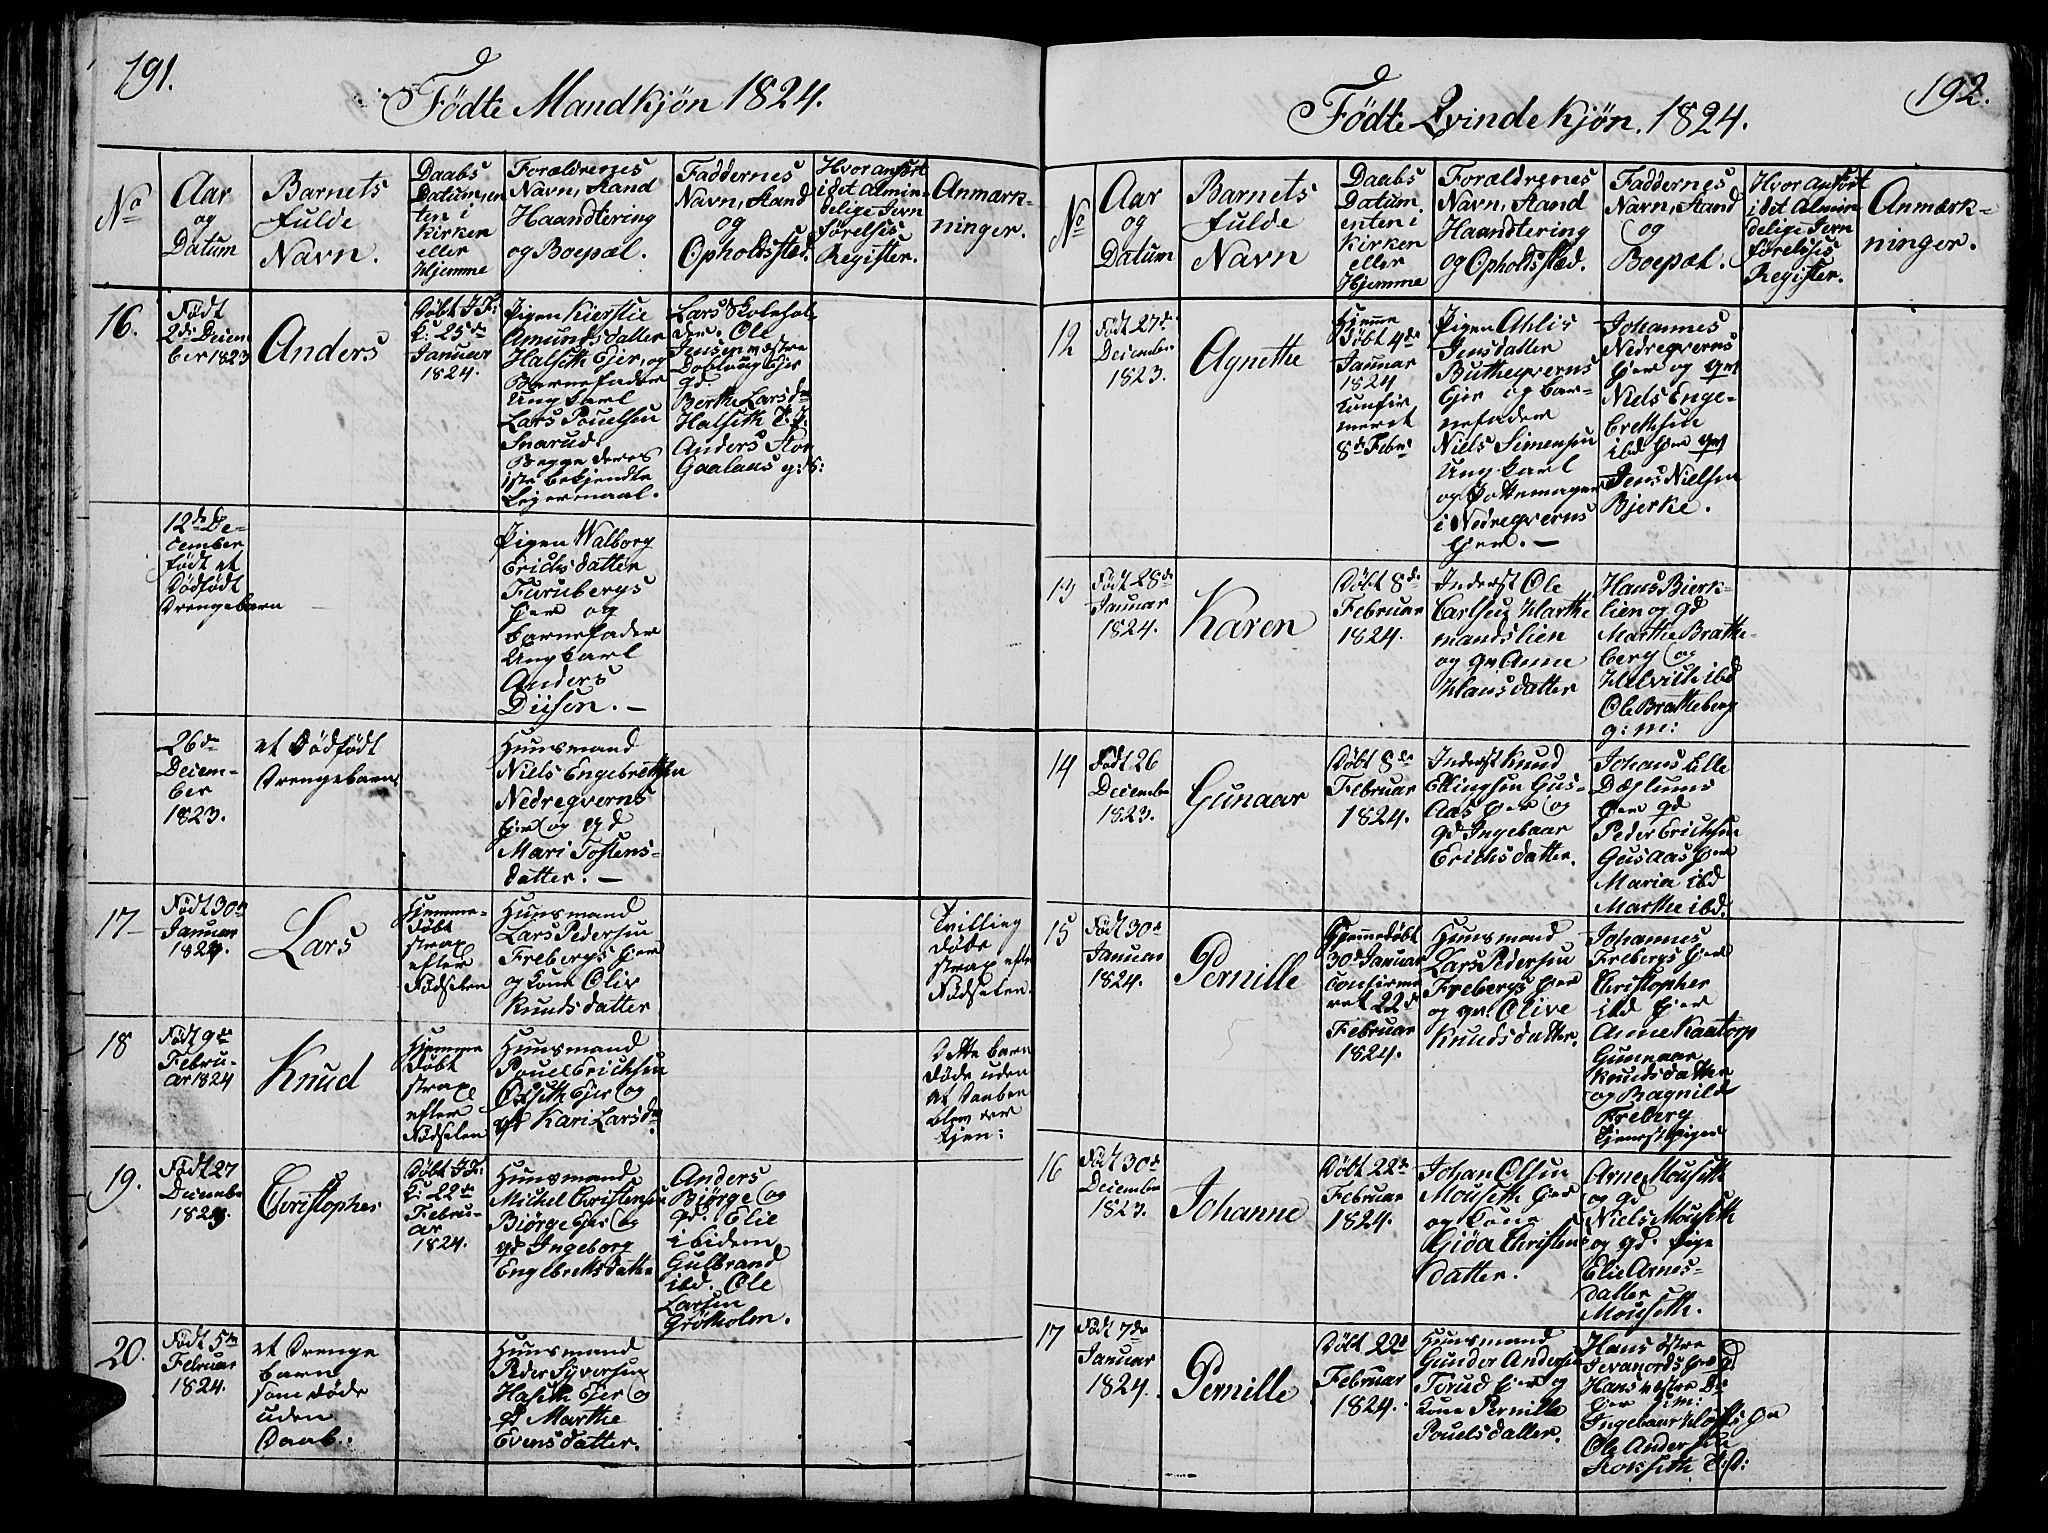 191.
Fødte Mandkjøn 1824.
No
Aar
og
Datum
Barnets
fulde
Navn.
Daabs
Datum, en
ten i
Kirken
eller
Hjemme
Forældrenes
Navn, Stand
Haandtering
og Boepæl.
Faddernes
Navn, Stand
og
Opholdsstæd.
Hvor anført
i det Almin
delige Jevn
førelsis
Register.
Anmærk-
ninger.
16.
Født
2de Decem
ber 1823
Anders
Døbt I F:
K: 25de
Januar
1824.
Pigen Kierstie
Amundsdatter
Halseth Eier og
Barnefader
Ung karl
Lars Pouelsen
Snarud.
Begge deres
1ste bekjendte
Leiermaal.
Lars Skolehol-
der. Ole
Jensen vestre
Eier
gd
Berthe Larsdr
Halseth
Anders Stor
Gaalaas g: S:
12de De-
cember
født et
Dødfødt
Drengebarn
Pigen Walborg
Erichsdatter
Furubergs
Eier og
barnefader
Ungkarl
Anders
Diisen. –
26de
Decem-
ber
1823.
et Dødfødt
Drengebarn
Huusmand
Niels Engebretsen
Nedreqverns
Eier og gd
Mari Tostens-
datter. –
17
Født 30te
Januar
1824.
Lars
Hjemme-
døbt
strax
efter
Fødselen
Huusmand
Lars Pedersen
Frebergs Eier
og kone Oliv
Knudsdatter
Tvilling
døde
strax efter
Fødselen.
18
Født 9de
Febru-
ar 1824
Knud
Hjemme
Døbt
strax
efter
Fødselen
Huusmand
Pouel Erichsen
Eier og
gd Kari Larsdr
Dette barn
døde uden
at Daaben
blev
19.
Født 27
December
1823.
Christopher
Døbt I F:
K: 22de
Febru-
ar
1824.
Huusmand
Mickel Christensen
Biørge Eier og
gd Ingeborg
Englbrettsdatter
Anders
Biørge og
gd. Elie
ibidem
Gulbrand
ibd. Ole
Larsen
Grøtholm.
20.
Født 5te
Februar
1824.
et Drenge
barn
som døde
uden
Daab.
Huusmand
Peder Syversen
Haseth Eier og
gd Marthe
Evensdatter.
192.
Fødte Qvindekjøn. 1824.
No
Aar
og
Datum
Barnets
fulde
Navn
Daabs
Datum
enten i
Kirken
eller
Hjemme
Forældrenes
Navn, Stand
Haandtering
og Opholdsstæd.
Faddernes
Navn, Stand
og
Boepæl.
Hvor Anført
i det Almin
delige Jevn
førelsis
Register.
Anmærk-
ninger.
12
Født 27de
December
1823.
Agnethe
Hjemme
Døbt 4de
Januar
1824
Confir
meret
8de Febr
Pigen Ahlis
Jensdatter
Butheqverns
Eier og bar-
nefader
Niels Simensen
Ung karl
og Pottemager
i Nedreqverns
Eier. –
Johannes
Nedreqverns
Eier og gd
Niels Enge-
brethsen
ibd Eier gd
Jens Nielsen
Bjerke.
13
Født 28de
Januar
1824.
Karen
Døbt 8de
Februar
1824.
Inderst Ole
Carlsen Marthe
mandslien
og gd Anne
Hansdatter
Hans Bierk-
lien og gd
Marthe Brathe-
berg og
ibd
Ole Bratteberg
g: M:
14
Født 26
December
1823.
Gunaar
Døbt 8de
Februar
1824.
Inderst Knud
Ellingsen Gus-
Aas Eier og
gd Ingebaar
Erichsdatter.
Johans Elle
Dæhlums
Eier gd
Peder Erichsen
Gusaas Eier
Maria ibd
Marthe ibd.
15
Født 30te
Januar
1824.
Pernille
Hjemmedøbt
30te Januar
Confirme
ret 22de
Februar
1824.
Huusmand
Lars Pedersen
Frebergs Eier
og gd. Olive
Knudsdatter.
Johannes
Frebergs Eier
Christopher
ibd Eier
Anne Kaatorp
Gunnaar
Knudsdatter
og Ragnild
Freberg
tjenestpiger
16
Født 30te
December
1823.
Johanne
Døbt 22de
Februar
1824.
Johan Olsen
Mouseth Eier
og kone
Giøa Christens
datter.
Arne Mouseth
og gd
Niels Mouseth
og gd. Pige
Elie Arnes-
datter
Mouseth.
17
Født 7de
Januar
1824.
Pernille
Døbt 22de
Februar
1824.
Huusmand
Gunder Andersen
Torud Eier og
kone Pernille
Pouelsdatter.
Hans østre
Eier gd
Hans vestre
Eier
Ingebaar
Ole Andersen
Stokseth